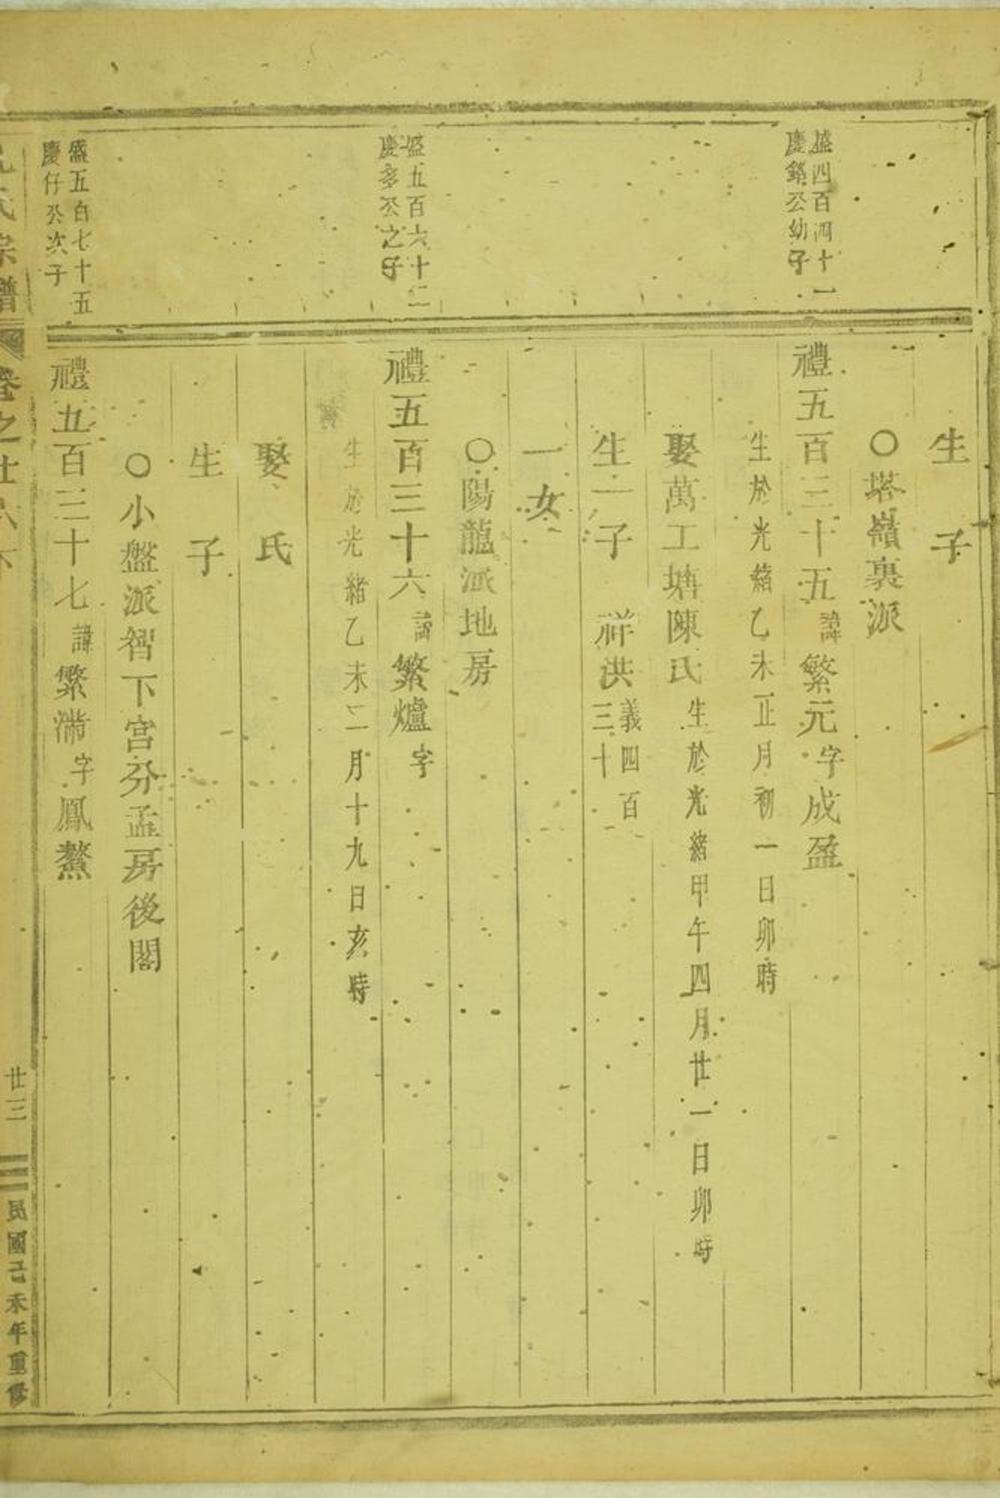 生 子
○塔嶺裏派
盛四百四十一
慶錦公幼子
禮五百三十五諱繁元字成盈
生於光緒乙未正月初一日卯時
娶萬工塘陳氏生於光緒甲午四月廿一日卯時
生一子 祥洪義四百三十
一女
○陽龍派地房
盛五百六十二
慶多公之子
禮五百三十六諱繁爐字
生於光緒乙未二月十九日亥時
娶 氏
生 子
○小盤派智下宮分孟房後閣
盛五百七十五
慶仔公次子
禮五百三十七諱繁滯字鳳鰲
氏宗譜 卷之廿六下 廿三 民國己未年重修